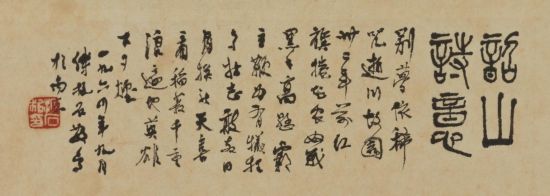 韶山
詩意
別夢依稀
咒逝川故園
卅二年前紅
旗捲起農奴戟
黑手高懸霸
主鞭為有犧牲
多壯志敢教日
月換新天喜
看稻菽千重
浪遍地英雄
下夕煙
一九六四年九月
傅抱石敬寫
於南京